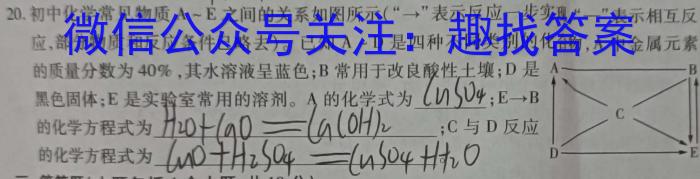 20. 初中化学常见物质A~E之间的关系如图所示("→"表示反应一步实现,"—"表示相互反
应,部
微信公众号关注:趣找答案
金属元素
的质量分数为40%,其水溶液呈蓝色;B常用于改良酸性土壤;D是
黑色固体;E是实验室常用的溶剂。A的化学式为 CuSO4 ;E→B
的化学方程式为 H2O+CaO══Ca(OH)2 ;C与D反应
的化学方程式为 CuO+H2SO4══CuSO4+H2O
A B
C
D E